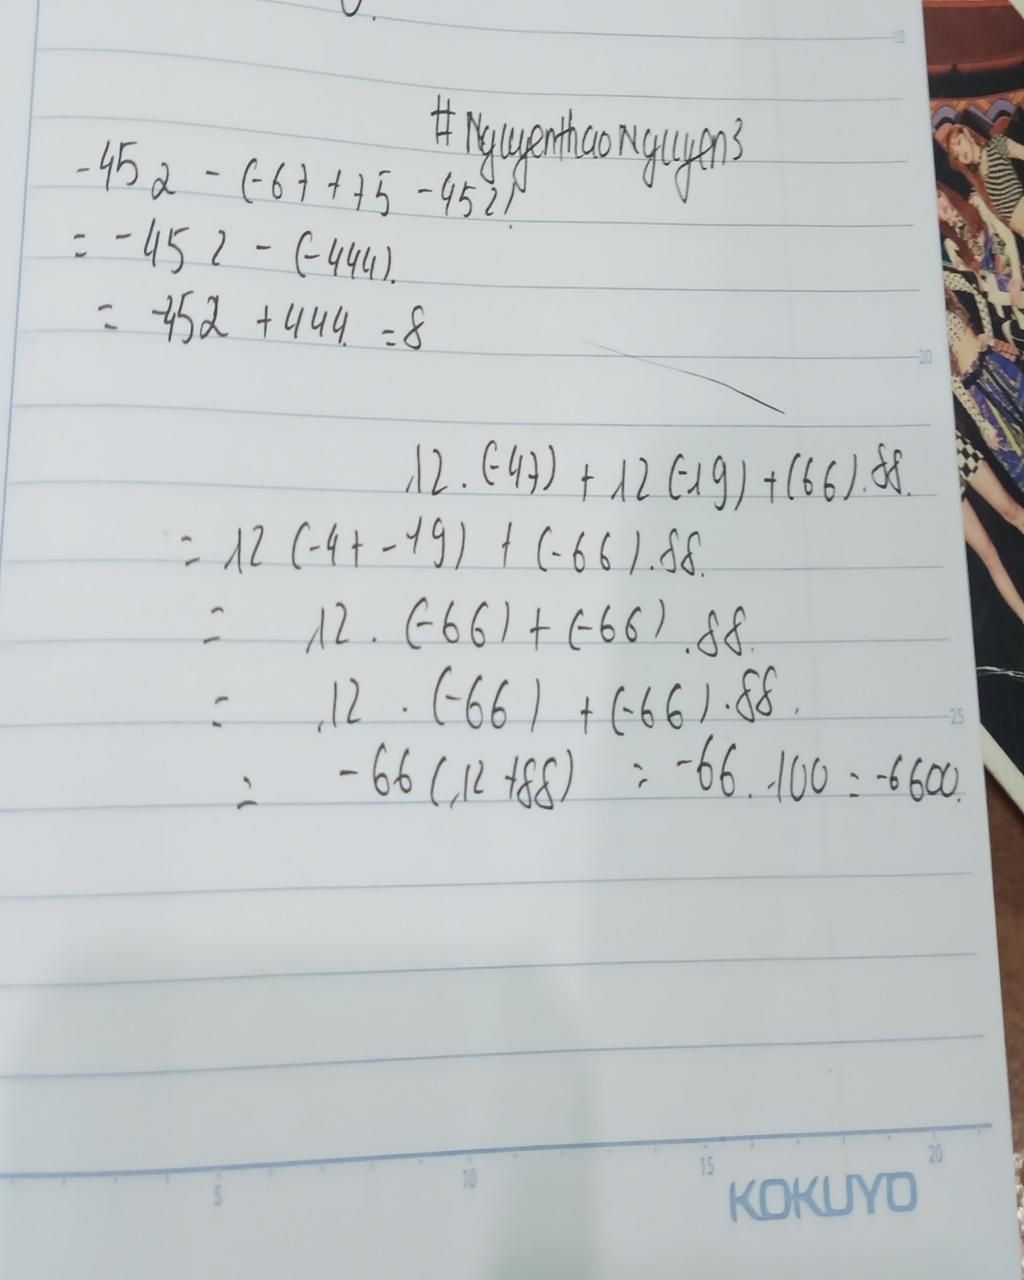 15
#NguyenthaoNguyen3
-452 - (-67 + 75 - 452)
= -452 - (-444).
= -452 + 444. = 8
20
12. (-47) + 12 (-19) + (66). 88.
= 12 (-47 - 19) + (-66). 88.
= 12. (-66) + (-66). 88.
= 12. (-66) + (-66). 88.
25
= -66 (12 + 88) = -66. 100 = -6600.
5 10 15 20
KOKUYO